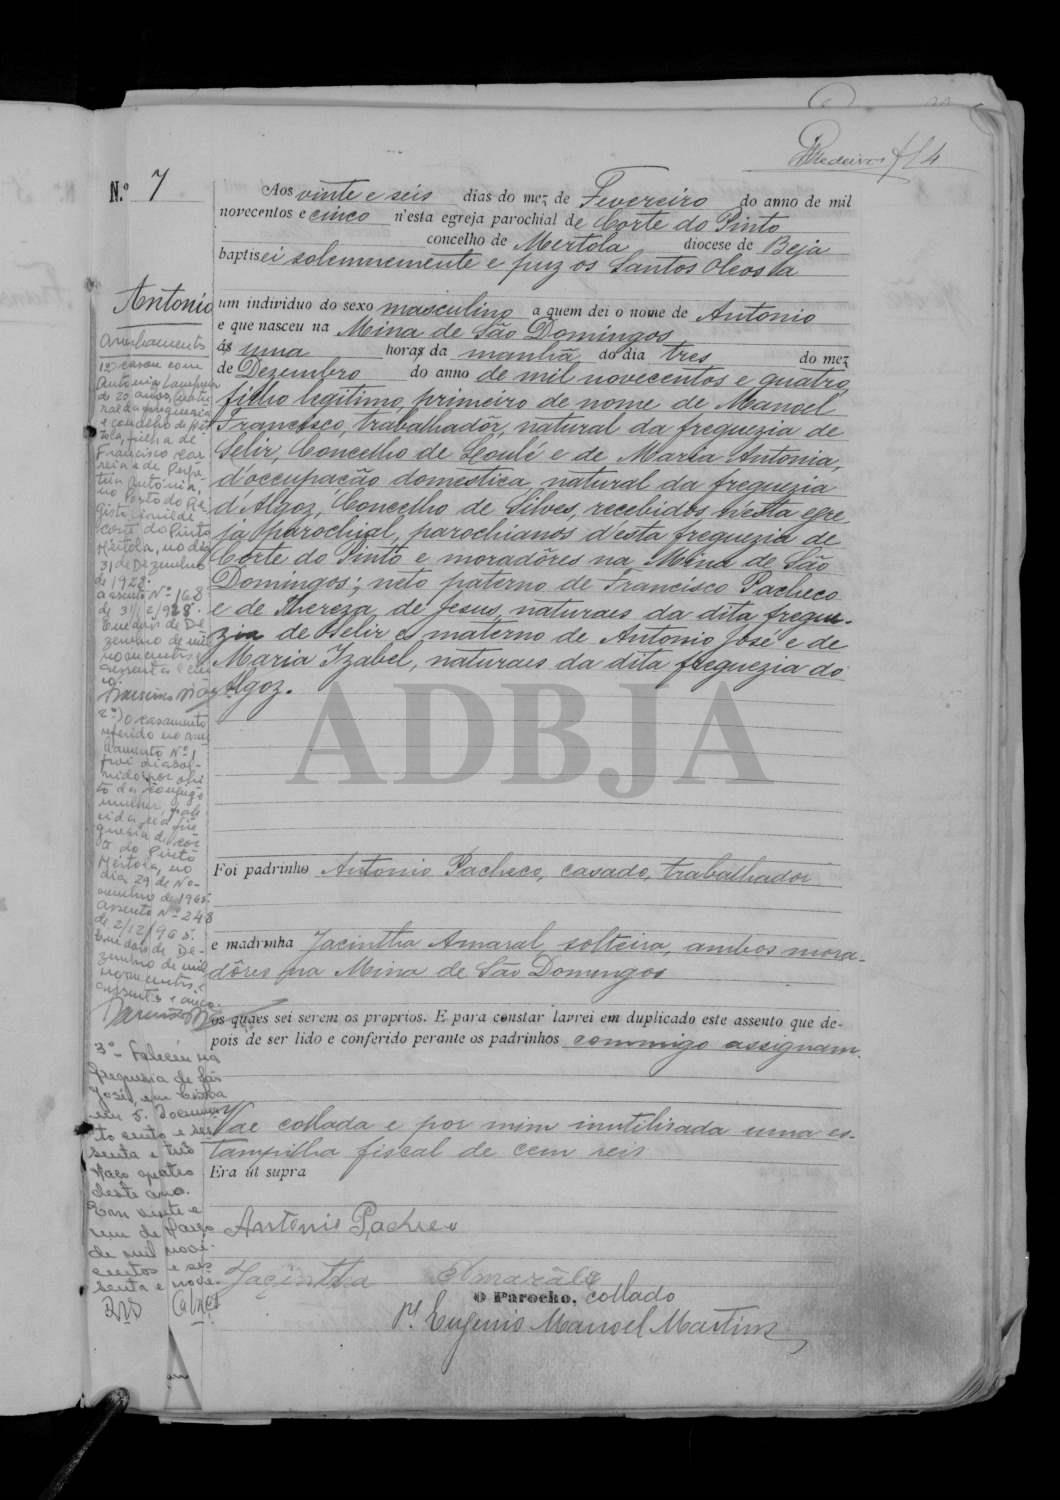 fl 4
N.º 7
Aos vinte e seis dias do mez de Fevereiro do anno de mil
novecentos e cinco n'esta egreja parochial de Corte do Pinto
concelho de Mertola diocese de Beja
baptisei solemnemente e puz os Santos Oleos a
Antonio
um individuo do sexo masculino a quem dei o nome de Antonio
e que nasceu na Mina de São Domingos
ás uma horas da manhã do dia tres do mez
de Dezembro do anno de mil novecentos e quatro,
filho legitimo, primeiro de nome de Manoel
Francisco, trabalhadôr, natural da freguezia de
Selir, Concelho de Loulé e de Maria Antonia,
d'occupação domestica, natural da freguezia
d'Algoz, Concelho de Silves, recebidos n'esta egre
ja parochial, parochianos d'esta freguezia de
Corte do Pinto e moradôres na Mina de São
Domingos; neto paterno de Francisco Pacheco
e de Thereza de Jesus, naturaes da dita fregue-
zia de Selir e materno de Antonio José e de
Maria Izabel, naturaes da dita freguezia do
Algoz.
Foi padrinho Antonio Pacheco, casado, trabalhador
e madrinha Jacintha Amaral, solteira, ambos mora-
dôres na Mina de São Domingos
os quaes sei serem os proprios. E para constar lavrei em duplicado este assento que de-
pois de ser lido e conferido perante os padrinhos commigo assignam.
Vae collada e por mim inutilisada uma es-
tampilha fiscal de cem reis
Era út supra
Antonio Pacheco
Jacintha Amarál
O Parocho, collado
P.e Eugenio Manoel Martins
Averbamentos
1º) Casou com
Antónia
de 20 anos, natu
ral da freguesia
e concelho de Mér
tola, filha de
Francisco Cor
reia e de Perpé
tua Antónia,
no Posto do Re
gisto Civil de
Corte do Pinto
Mértola, no dia
31 de Dezembro
de 1928.
assento Nº 168
de 31/12/928.
Em dois de De
zembro de mil
novecentos e
sessenta e cin
co.
2º) O casamento
referido no aver
bamento Nº 1
foi dissol-
vido por óbi
to da cônjuge
mulher, ocor
rida na fre
guesia de Cor
te do Pinto
Mértola, no
dia 29 de No-
vembro de 1965.
Assento Nº 248
de 2/12/965.
Em dois de De-
zembro de mil
novecentos e
sessenta e cinco.
3º - Faleceu na
freguesia de São
José, em Lisboa
em 5. Documen
to cento e ses
senta e três
Maço quatro
deste ano.
Em vinte e
um de Março
de mil nove-
centos e ses
senta e nove.
ADBJA